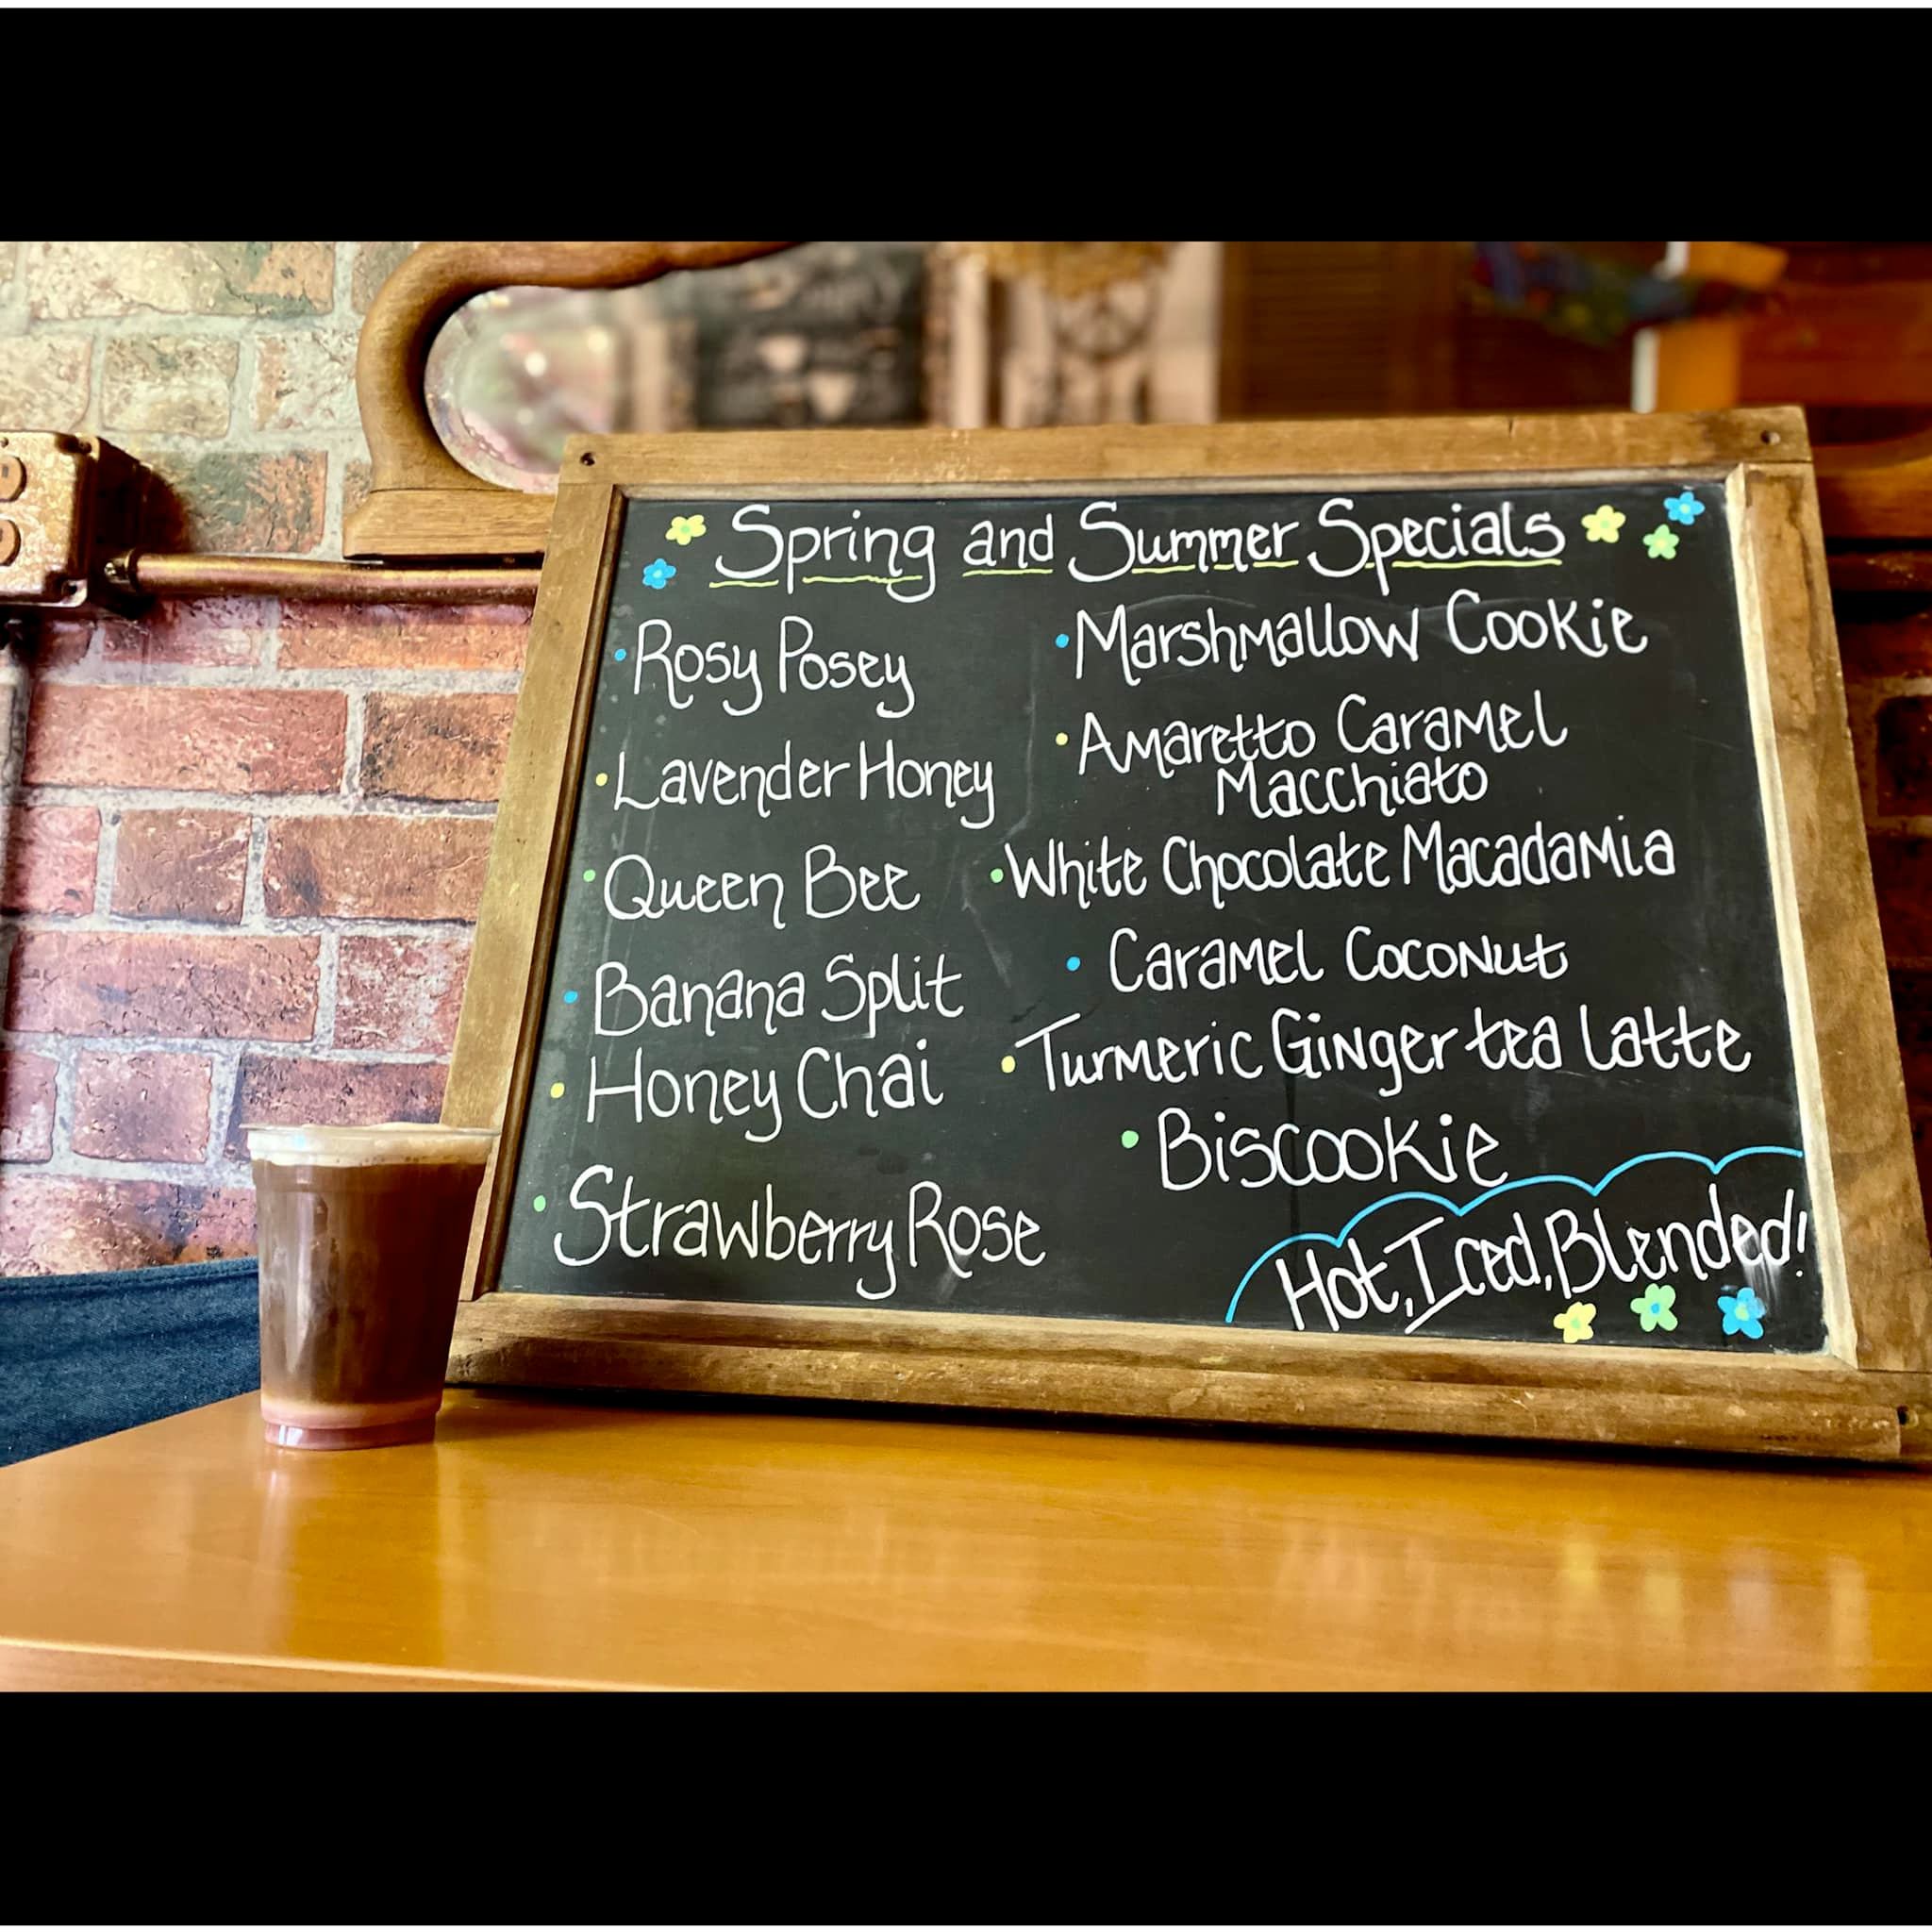 Spring and Summer Specials
• Rosy Posey
• Lavender Honey
• Queen Bee
• Banana Split
• Honey Chai
• Strawberry Rose
• Marshmallow Cookie
• Amaretto Caramel
Macchiato
• White Chocolate Macadamia
• Caramel Coconut
• Turmeric Ginger tea latte
• Biscookie
Hot, Iced, Blended!